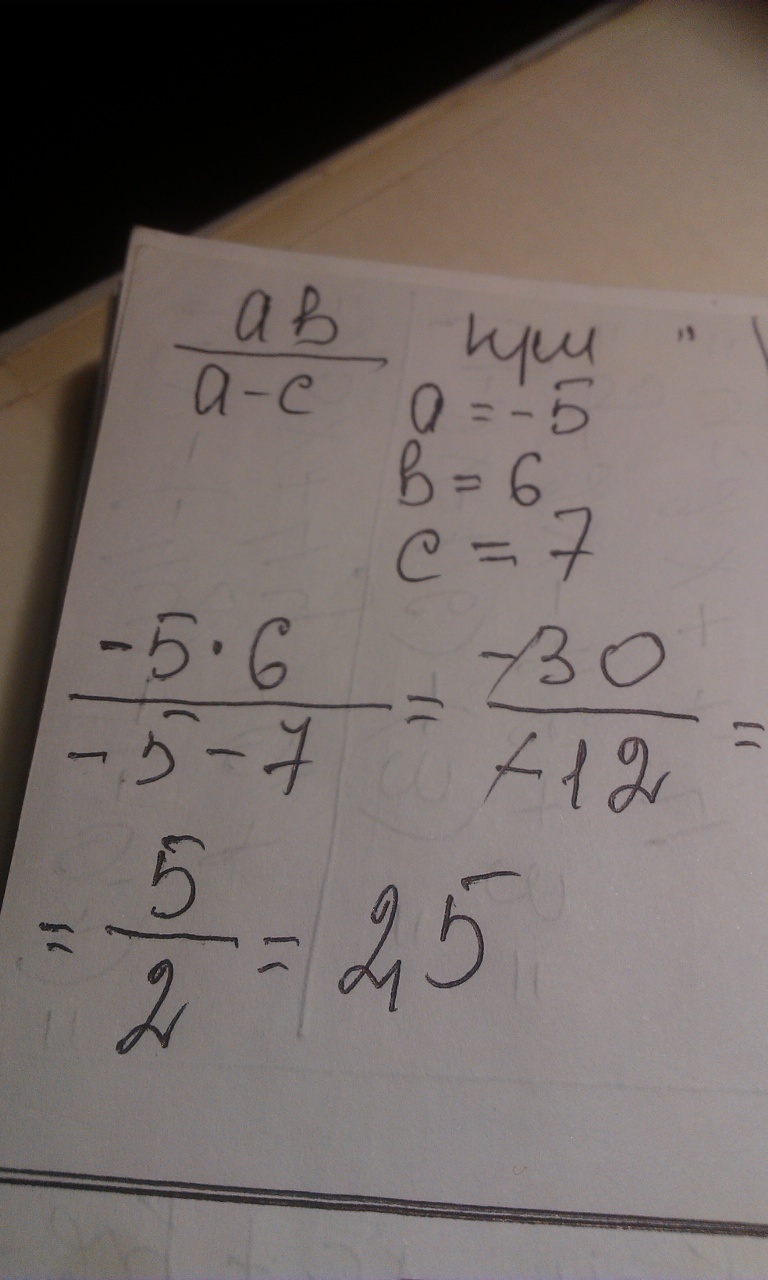 ab/(a-c) при
a = -5
b = 6
c = 7
(-5·6)/(-5-7) = (-30)/(-12) =
= 5/2 = 2,5